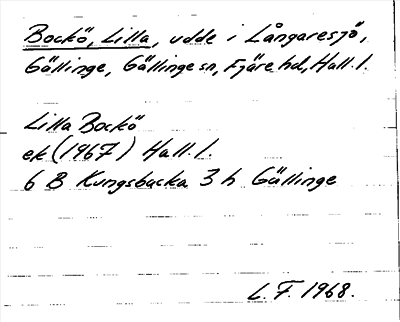 Bockö, Lilla, udde i Långaresjö,
Gällinge, Gällinge sn, Fjäre hd, Hall. l.
Lilla Bockö
ek (1967) Hall. l.
6 B Kungsbacka 3 h Gällinge
L. F. 1968.